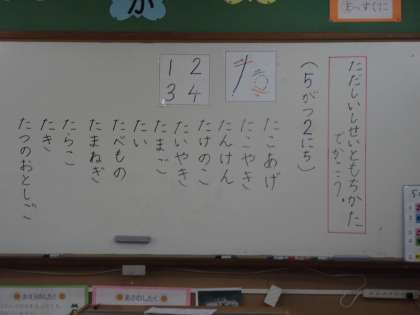 か
まっすぐに
ただしいしせいともちかた
でかこう。
(5がつ2にち)
た
1 2
3 4
たこあげ
たこやき
たんけん
たけのこ
たいやき
たまご
たい
たべもの
たまねぎ
たらこ
たき
たつのおとしご
あさのしたく